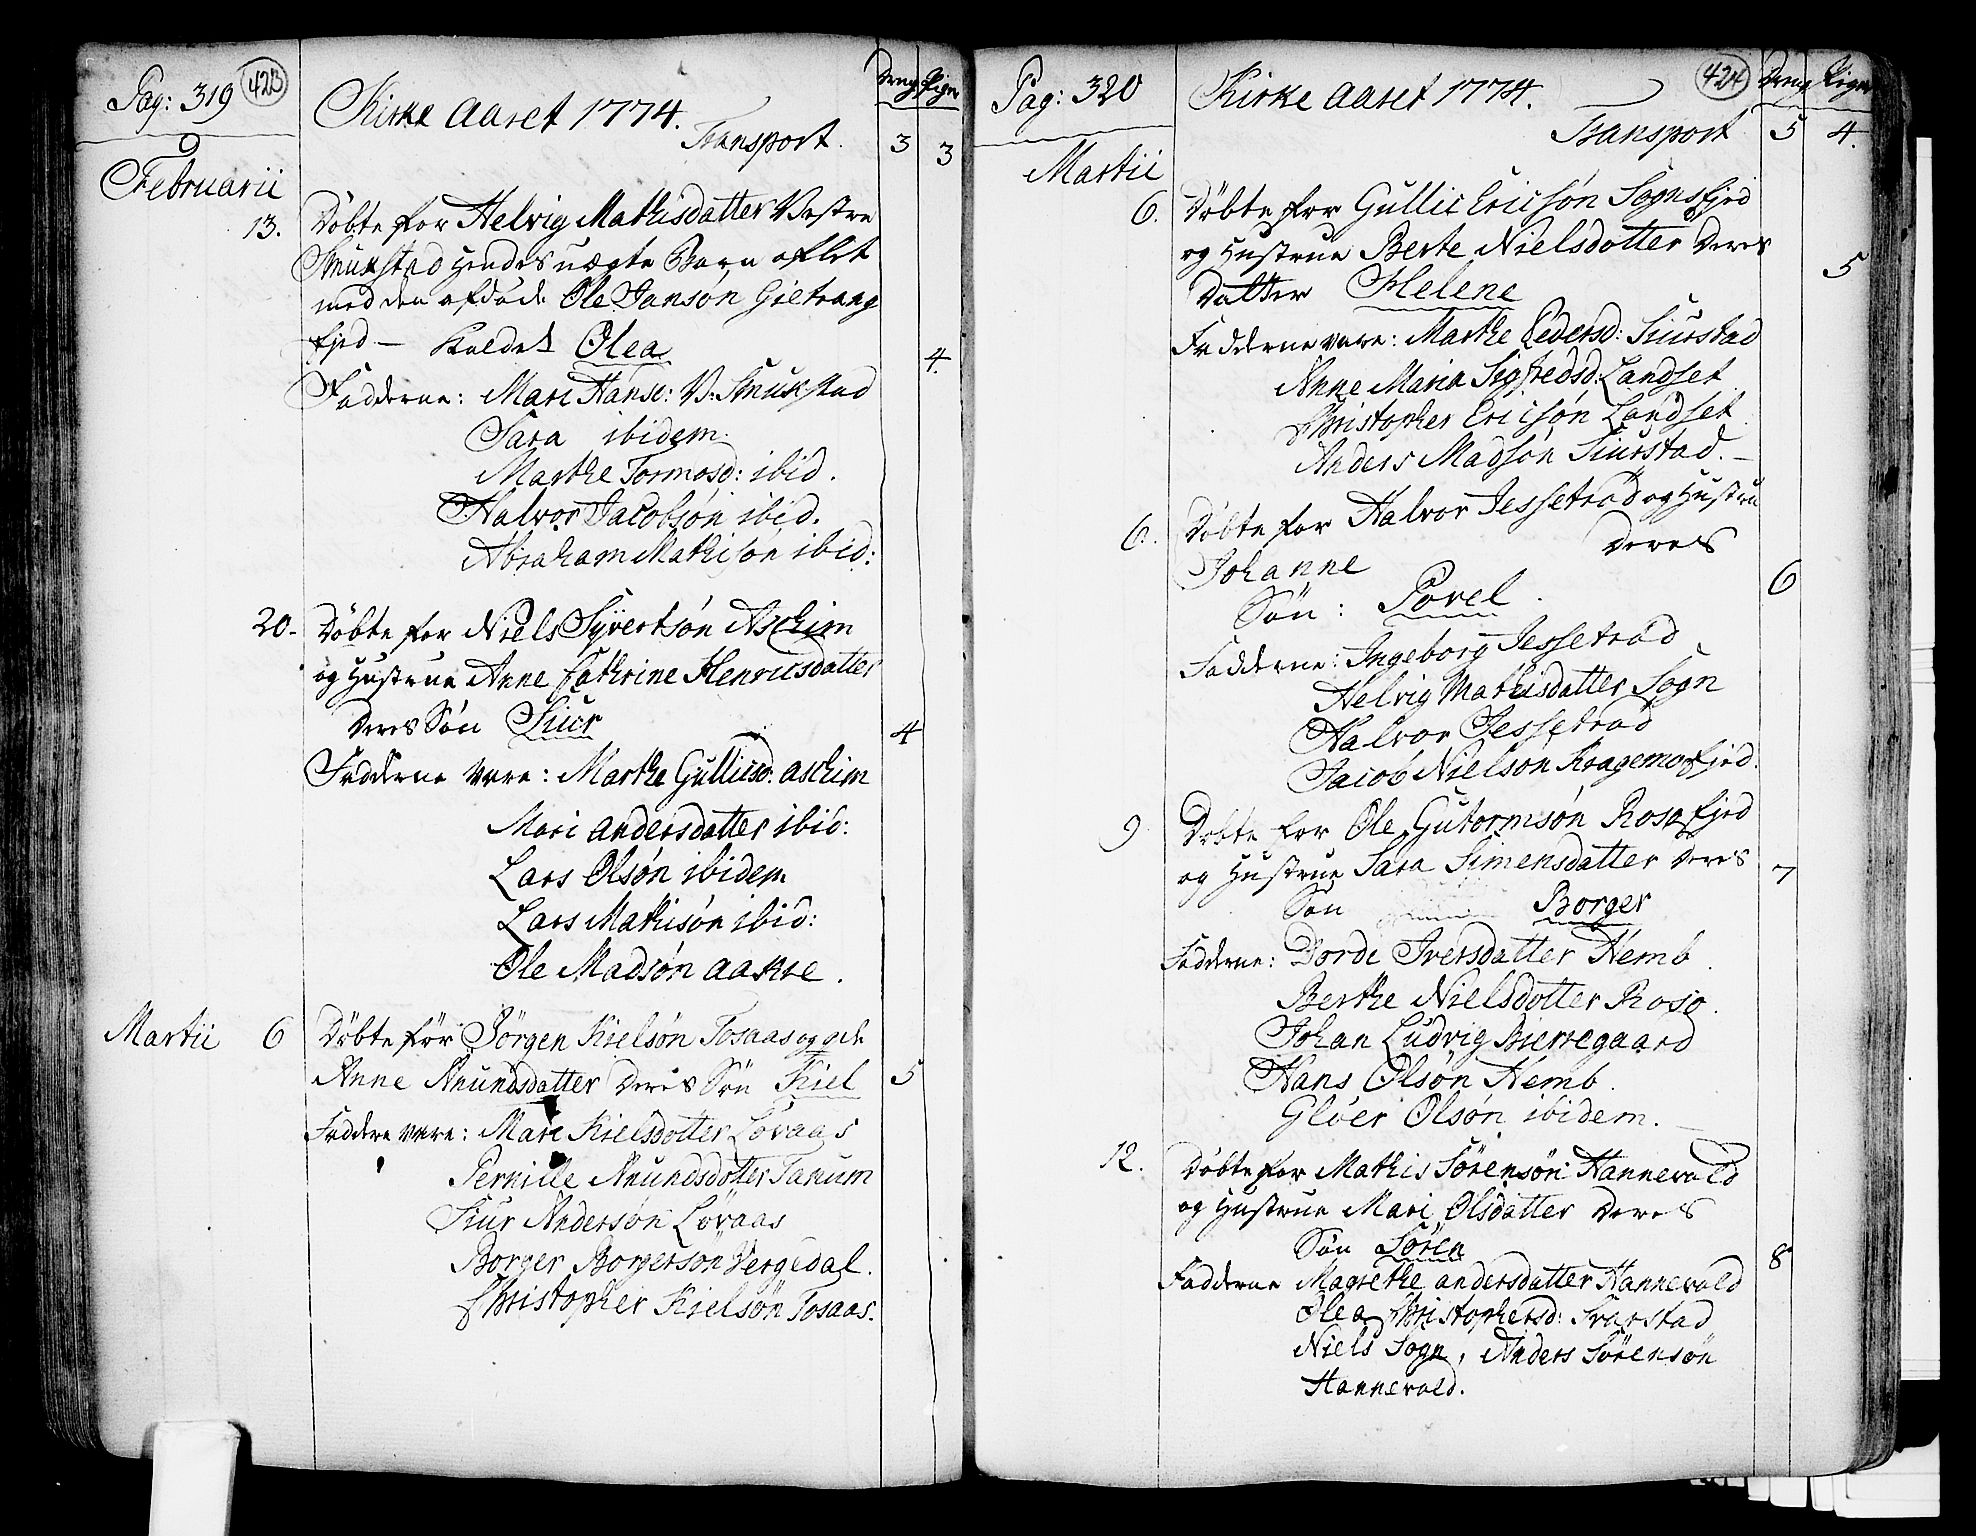 Pag: 319 423
Kirke Aaret 1774.
Drenge Piger
Transport. 3 3
Februarii
13. Döbte for Helvig Mathisdatter Vestre
Smukstad hendes uægte Barn aflet
med den afdöde Ole Jansön Gietrang
fjed — kaldet Olea 4.
Fadderne: Mari Hansd: V. Smukstad
Sara ibidem
Marthe Tormosd: ibid.
Halvor Jacobsön ibid.
Abraham Mathisön ibid:
20. Döbte for Niels Syvertsön Aschim
og Hustrue Anne Cathrine Henricsdatter
Deres Sön Siur 4
Fadderne vare: Marthe Gullicsd: aschim
Mari andersdatter ibid:
Lars Olsön ibidem
Lars Mathisön ibid:
Ole Madsön aakre.
Martii 6 Döbte for Jörgen Kielsön Tosaas og
Anne Anundsdatter Deres Sön Kiel 5
Faddere vare: Mari Kielsdotter Lövaas
Pernille Anundsdotter Tanum
Siur Andersön Lövaas
Borger Borgersön Vergedal.
Christopher Kielsön Tosaas.
Pag: 320 424
Kirke Aaret 1774.
Drenge Piger
Transport 5 4.
Martii
6. Döbte for Gullic Ericsön Sognsfjed
og Hustrue Berte Nielsdotter Deres
Datter Helene 5
Fadderne vare: Marthe Pedersd: Siurstad
Anne Maria Sigfredsd: Landset
Christopher Ericsön Landset
Anders Madsön Siurstad. —
6. Döbte for Halvor Jessetrád og Hustrue
Johanne Deres
Sön: Povel. 6
Fadderne: Ingeborg Jessetrád
Helvig Mathisdatter Sogn
Halvor Jessetrád
Jacob Nielsön Kragemofjed.
9 Döbte for Ole Gutormsön Rosofjed
og Hustrue Sara Simensdatter Deres 7
Sön Borger
Fadderne: Dorde Iversdatter Hemb.
Berthe Nielsdotter Roso.
Johan Ludvig Bierregaard
Hans Olsön Hemb.
Glöer Olsön ibidem. —
12. Döbte for Mathis Sörensön Hannevold
og Hustrue Mari Olsdatter Deres
Sön Sören 8
Fadderne Magrethe andersdatter Hannevold
Olea Christophersd: Svarstad
Niels Sogn, Anders Sörensön
Hannevold.